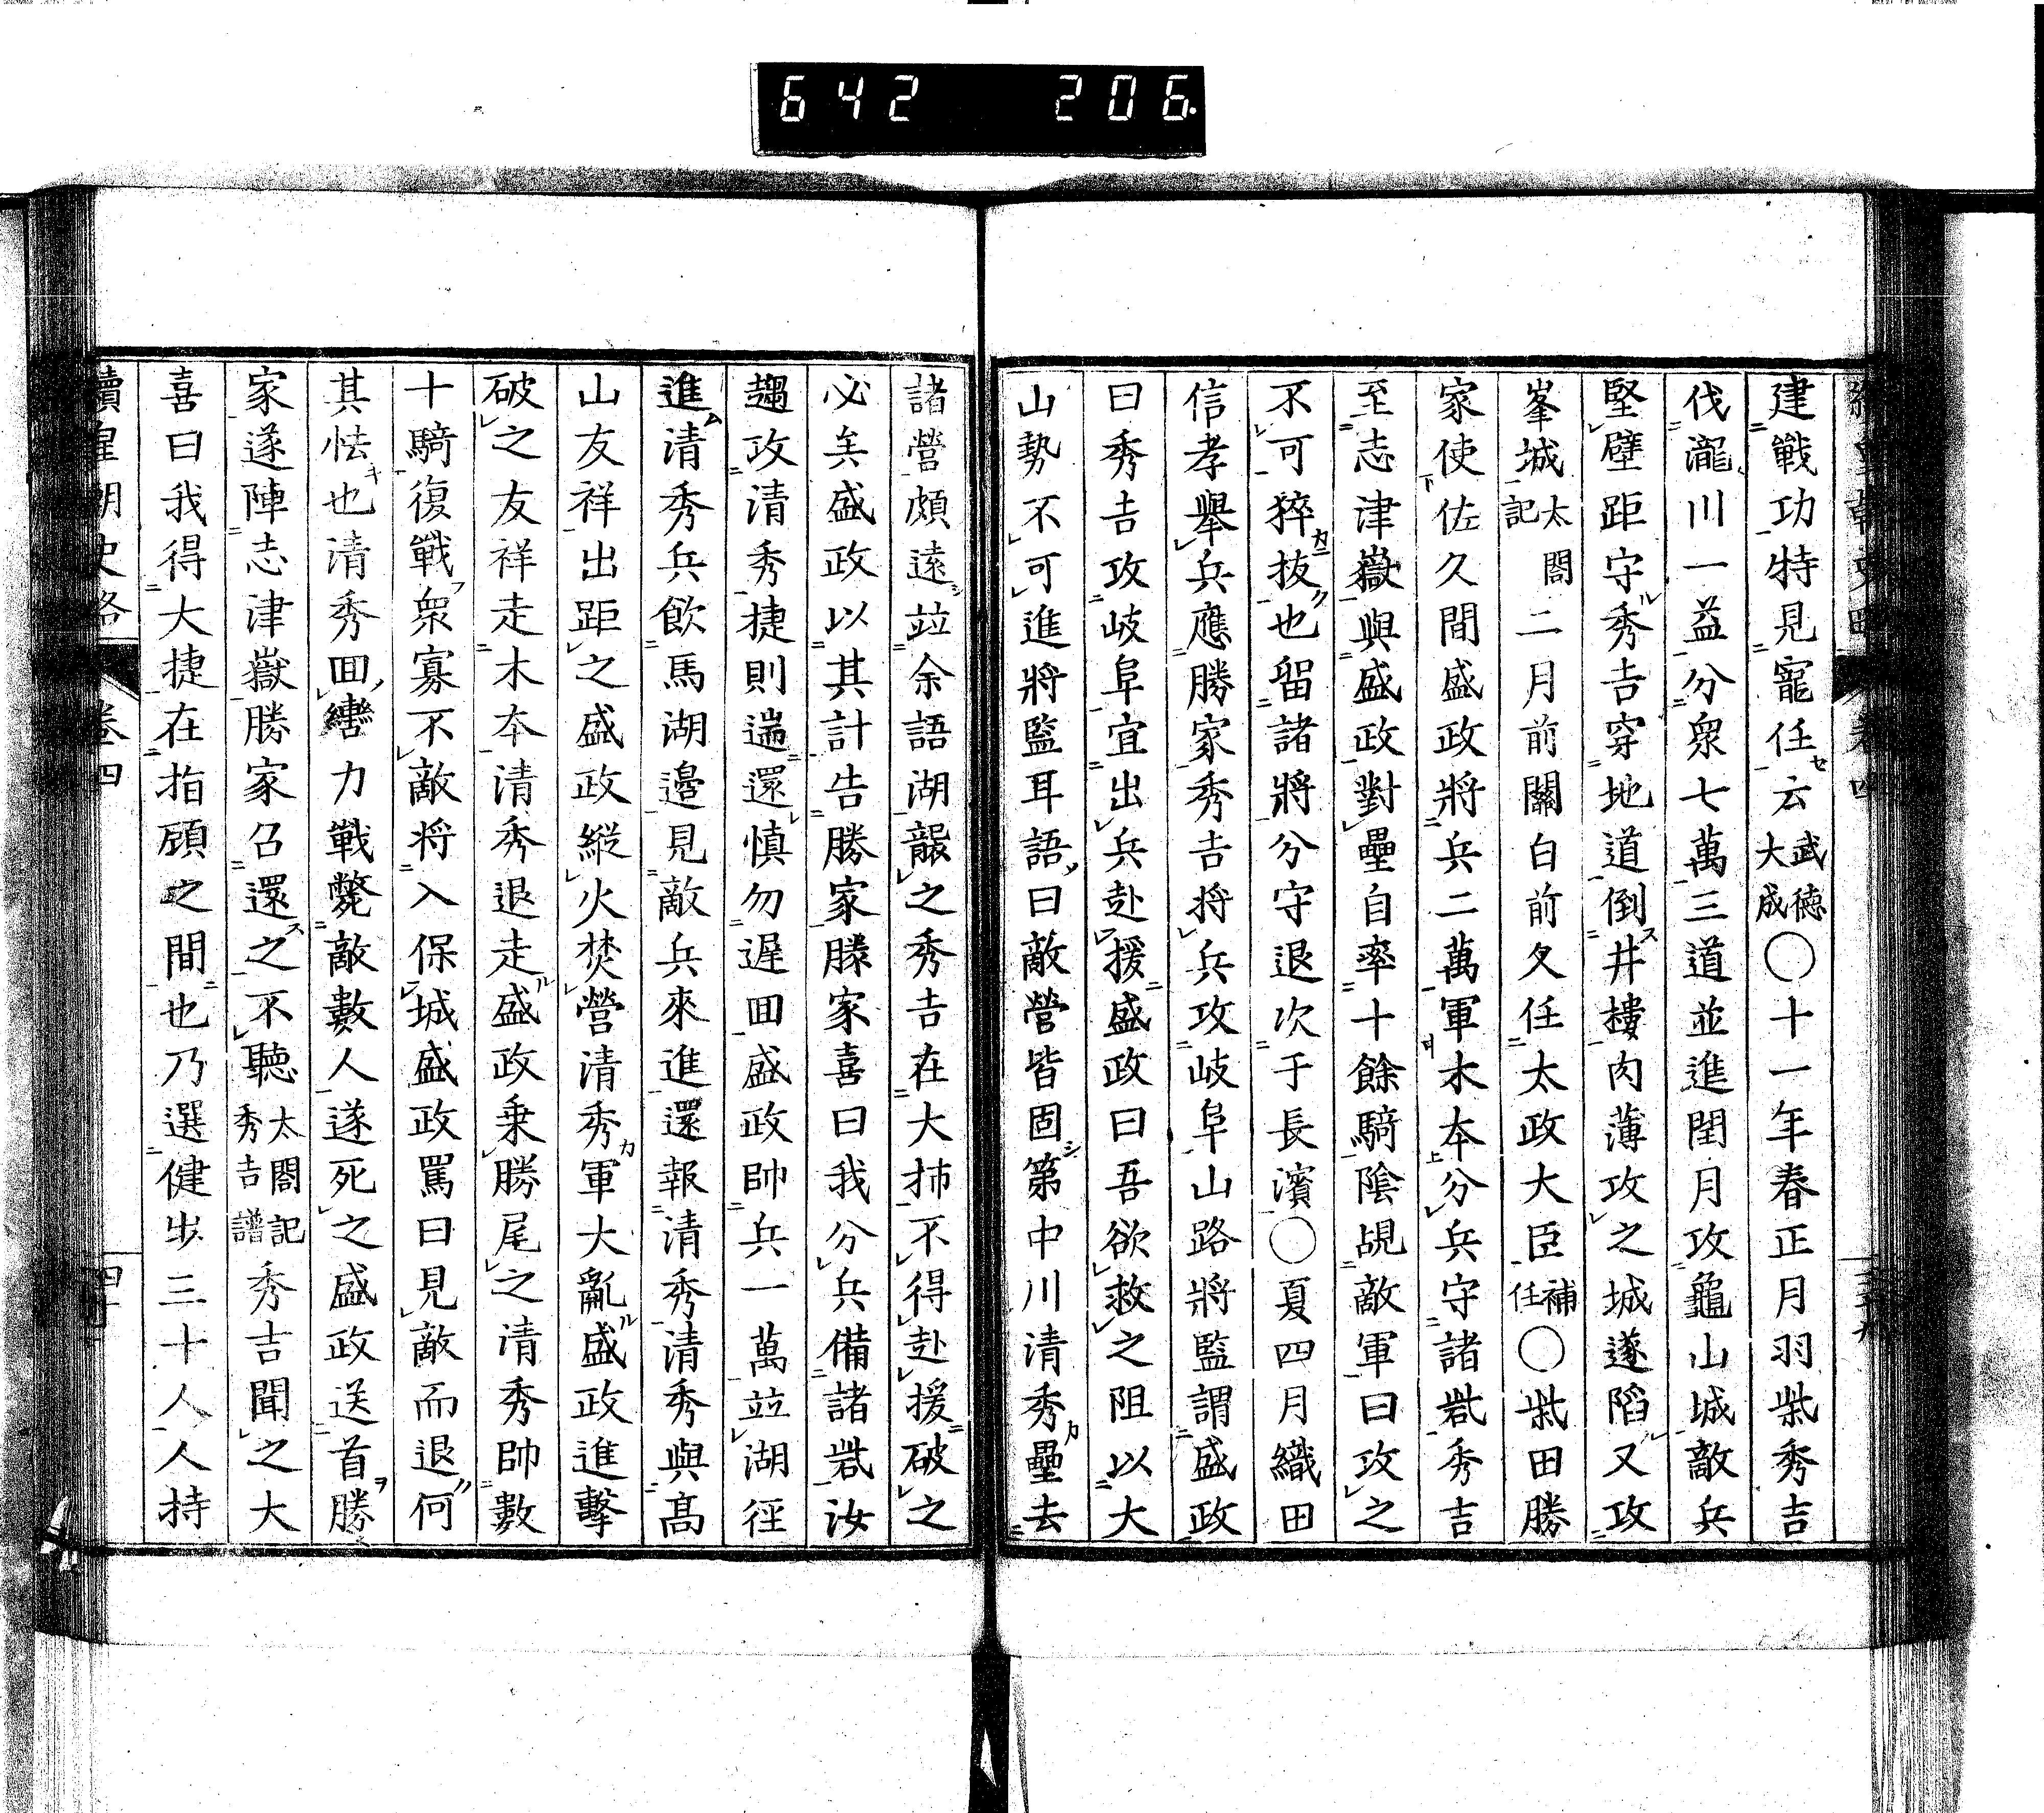 642 206
建戰功特見寵任云武德大成〇十一年春正月羽柴秀吉
伐瀧川一益分衆七萬三道並進閏月攻龜山城敵兵
堅壁距守秀吉穿地道倒井樓肉薄攻之城遂陷又攻
峯城太閤記二月前關白前久任太政大臣補任〇柴田勝
家使佐久間盛政將兵二萬軍木本分兵守諸砦秀吉
至志津嶽與盛政對壘自率十餘騎陰覘敵軍曰攻之
不可猝拔也留諸將分守退次于長濱〇夏四月織田
信孝舉兵應勝家秀吉将兵攻岐阜山路將監謂盛政
曰秀吉攻岐阜宜出兵赴援盛政曰吾欲救之阻以大
山勢不可進將監耳語曰敵營皆固第中川清秀壘去
諸營頗遠竝余語湖襲之秀吉在大柹不得赴援破之
必矣盛政以其計告勝家勝家喜曰我分兵備諸砦汝
趨攻清秀捷則遄還慎勿遲回盛政帥兵一萬竝湖徑
進清秀兵飲馬湖邉見敵兵來進還報清秀清秀與髙
山友祥出距之盛政縱火焚營清秀軍大亂盛政進擊
破之友祥走木本清秀退走盛政乗勝尾之清秀帥數
十騎復戰衆寡不敵将入保城盛政罵曰見敵而退何
其怯也清秀回轡力戰斃敵數人遂死之盛政送首勝
家遂陣志津嶽勝家召還之不聽太閤記秀吉譜秀吉聞之大
喜曰我得大捷在指顧之間也乃選健步三十人人持
續皇朝史略 卷四